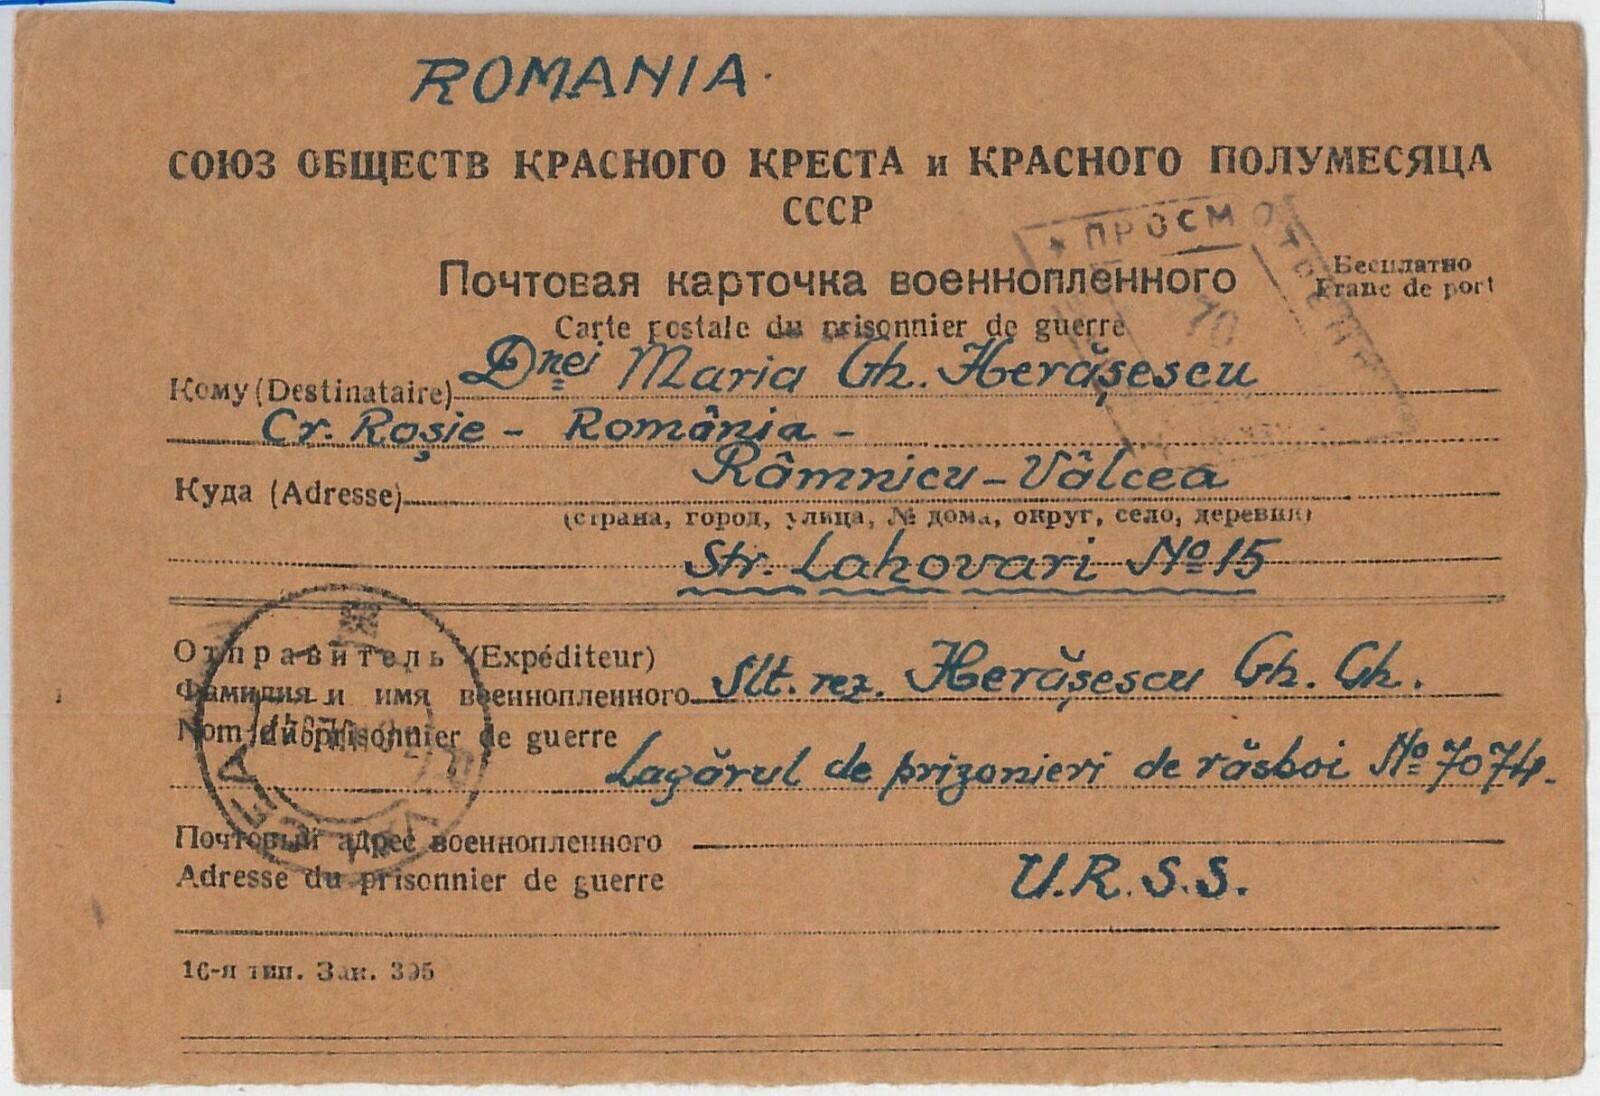 ROMANIA.
СОЮЗ ОБЩЕСТВ КРАСНОГО КРЕСТА и КРАСНОГО ПОЛУМЕСЯЦА
СССР
★ ПРОСМОТРЕНО
10
Почтовая карточка военнопленного
Бесплатно
Franc de port
Carte postale du prisonnier de guerre
Кому (Destinataire) Dnei Maria Gh. Herășescu
Cr. Roșie - România -
Куда (Adresse) Râmnicu-Vâlcea
(страна, город, улица, № дома, округ, село, деревня)
Str. Lahovari No 15
Отправитель (Expéditeur)
Фамилия и имя военнопленного Slt. rez. Herășescu Gh. Gh.
Nom du prisonnier de guerre
Lagărul de prizonieri de răsboi No 7074.
Почтовый адрес военнопленного
Adresse du prisonnier de guerre U.R.S.S.
16-я тип. Зак. 395